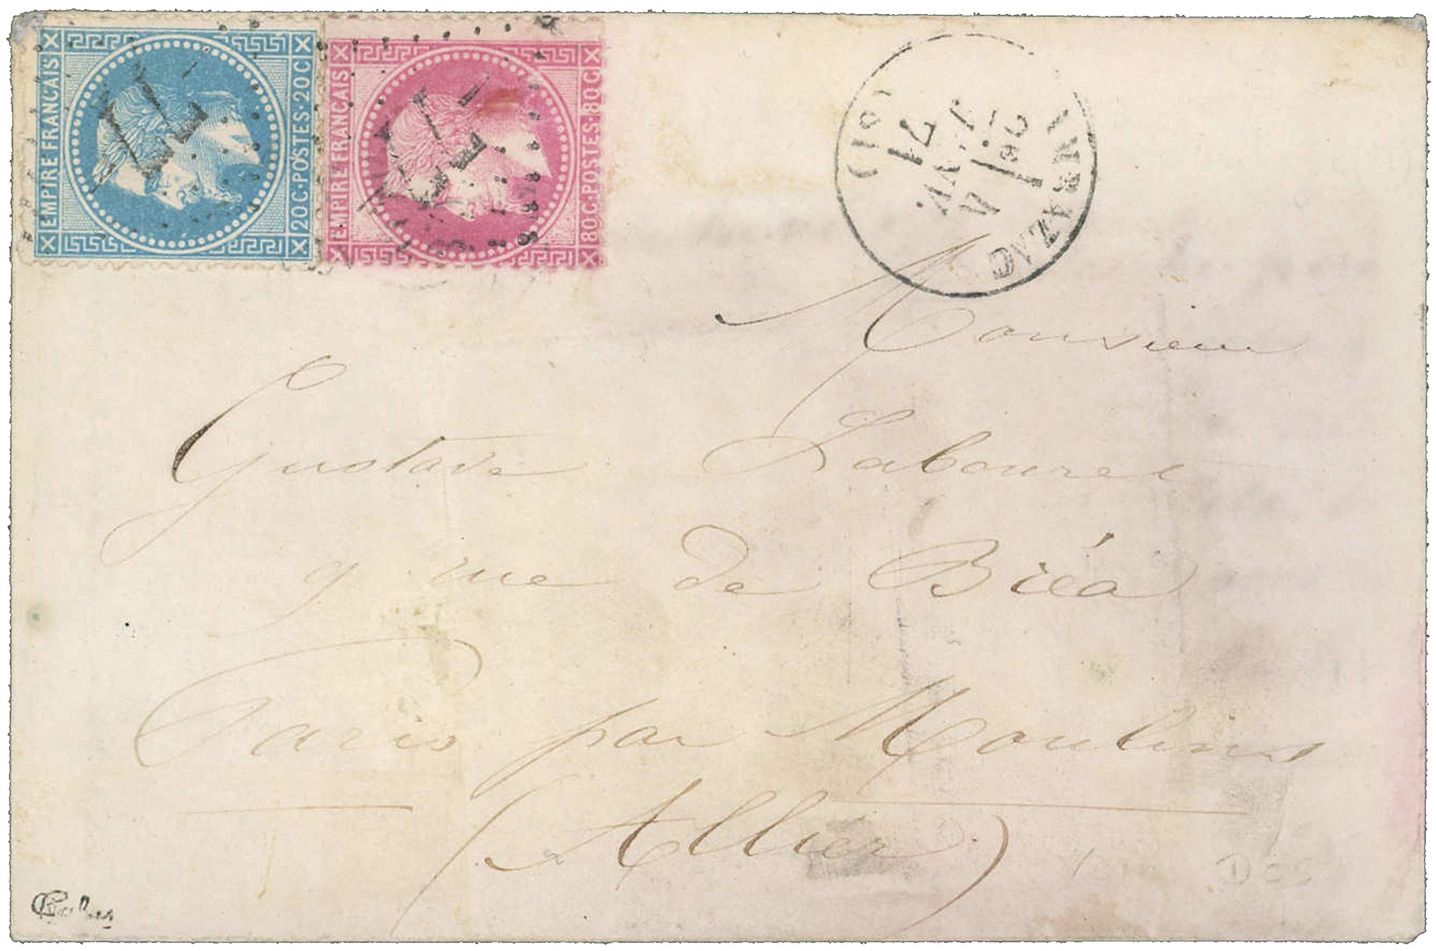 EMPIRE FRANÇAIS
20 C·POSTES·20 C
EMPIRE FRANÇAIS
80 C·POSTES·80 C
71
Monsieur
Gustave Labouret
9 rue de Bréa
Paris par Moulins
(Allier)
DOS